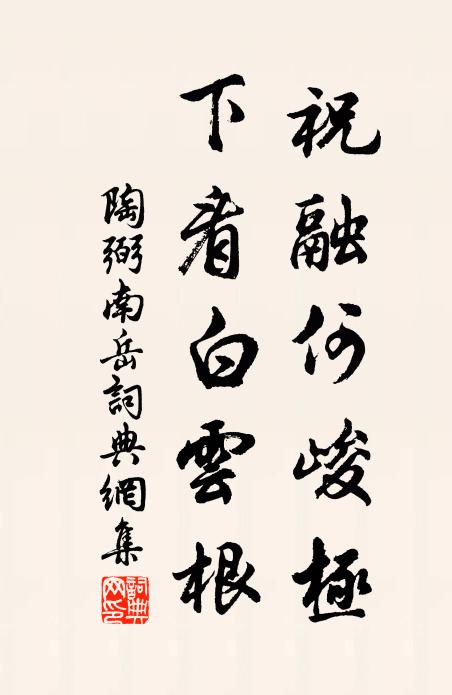 祝融何峻極
下看白雲根
陶弼南岳詞典網集
詞典网印